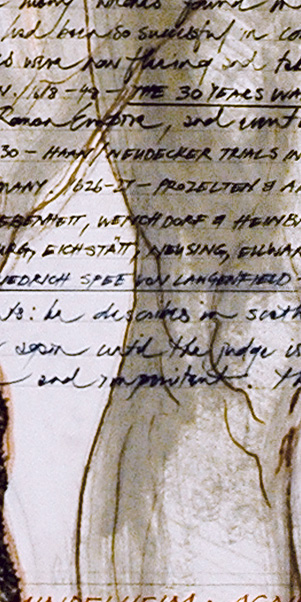 many witches found
had been so successful in
were now fleeing and
1618-48 - THE 30 YEARS WA
Roman Empire, and
30 - HAAN/NEUDECKER TRIALS IN
MANY. 1626-27 - PROZELTEN & A
EBENHETT, WENCHDORF &
URG, EICHSTÄTT, NEUSING, ELLWAN
IEDRICH SPEE VON LANGENFIELD
ts: he describes in
again until the judge is
and impenitent. Th